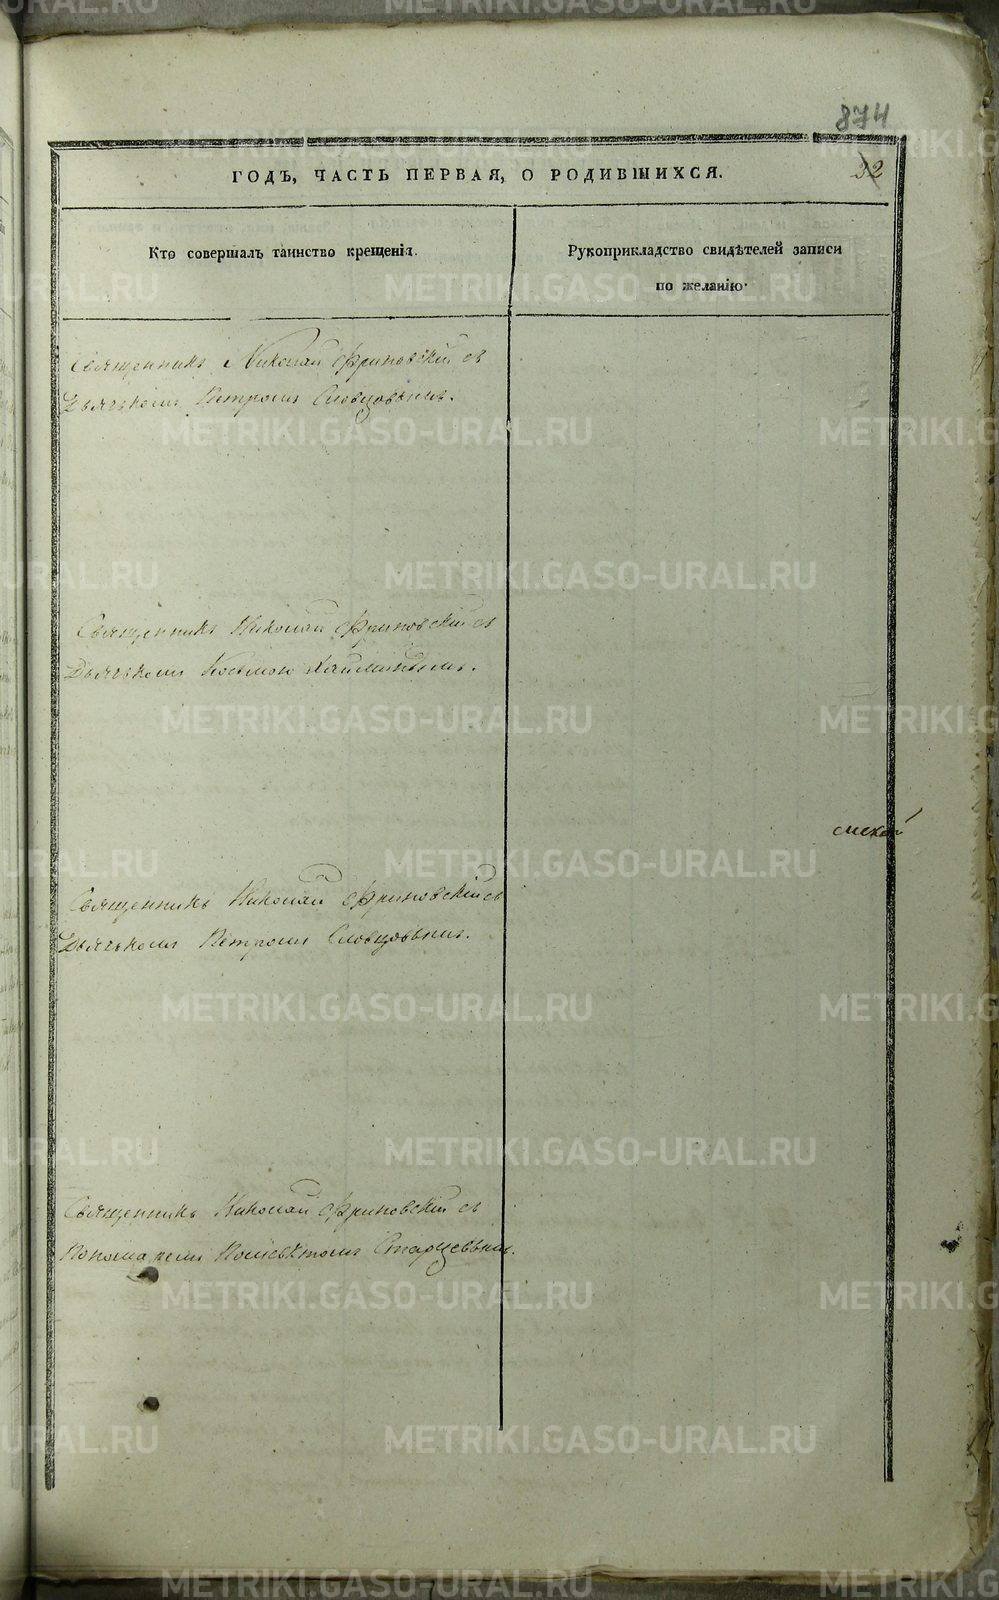 874
32
ГОДЪ, ЧАСТЬ ПЕРВАЯ, О РОДИВШИХСЯ.
Кто совершалъ таинство крещенія.
Рукоприкладство свидѣтелей записи
по желанію.
Священникъ Николай Фриновскій съ
Дьячькомъ Петромъ Словцовымъ.
Священникъ Николай Фриновскій съ
Дьячькомъ Космою
Священникъ Николай Фриновскій съ
Дьячькомъ Петромъ Словцовымъ.
Священникъ Николай Фриновскій съ
Пономаремъ Старцевымъ.
METRIKI.GASO-URAL.RU